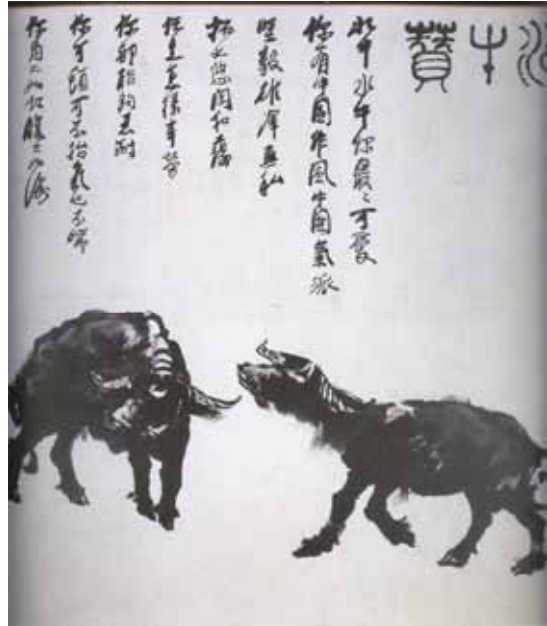 水牛贊
水牛水牛你最々可愛
你有中國作風中國氣派
堅毅雄渾無私
拓大悠閑和藹
任是怎樣辛勞
你都能夠忍耐
你可頭也不抬氣也不喘
你角大如虹腹大如海